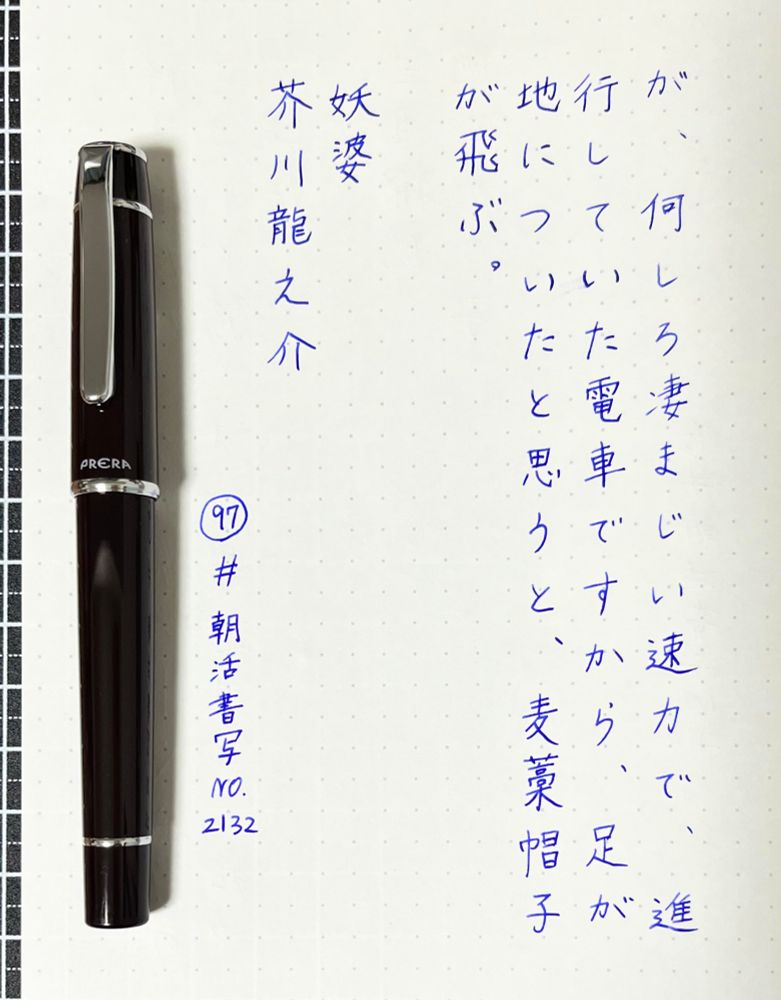 が、何しろ凄まじい速力で、進
行していた電車ですから、足が
地についたと思うと、麦藁帽子
が飛ぶ。
妖婆
芥川龍之介
97
#朝活書写
NO.
2132
PRERA